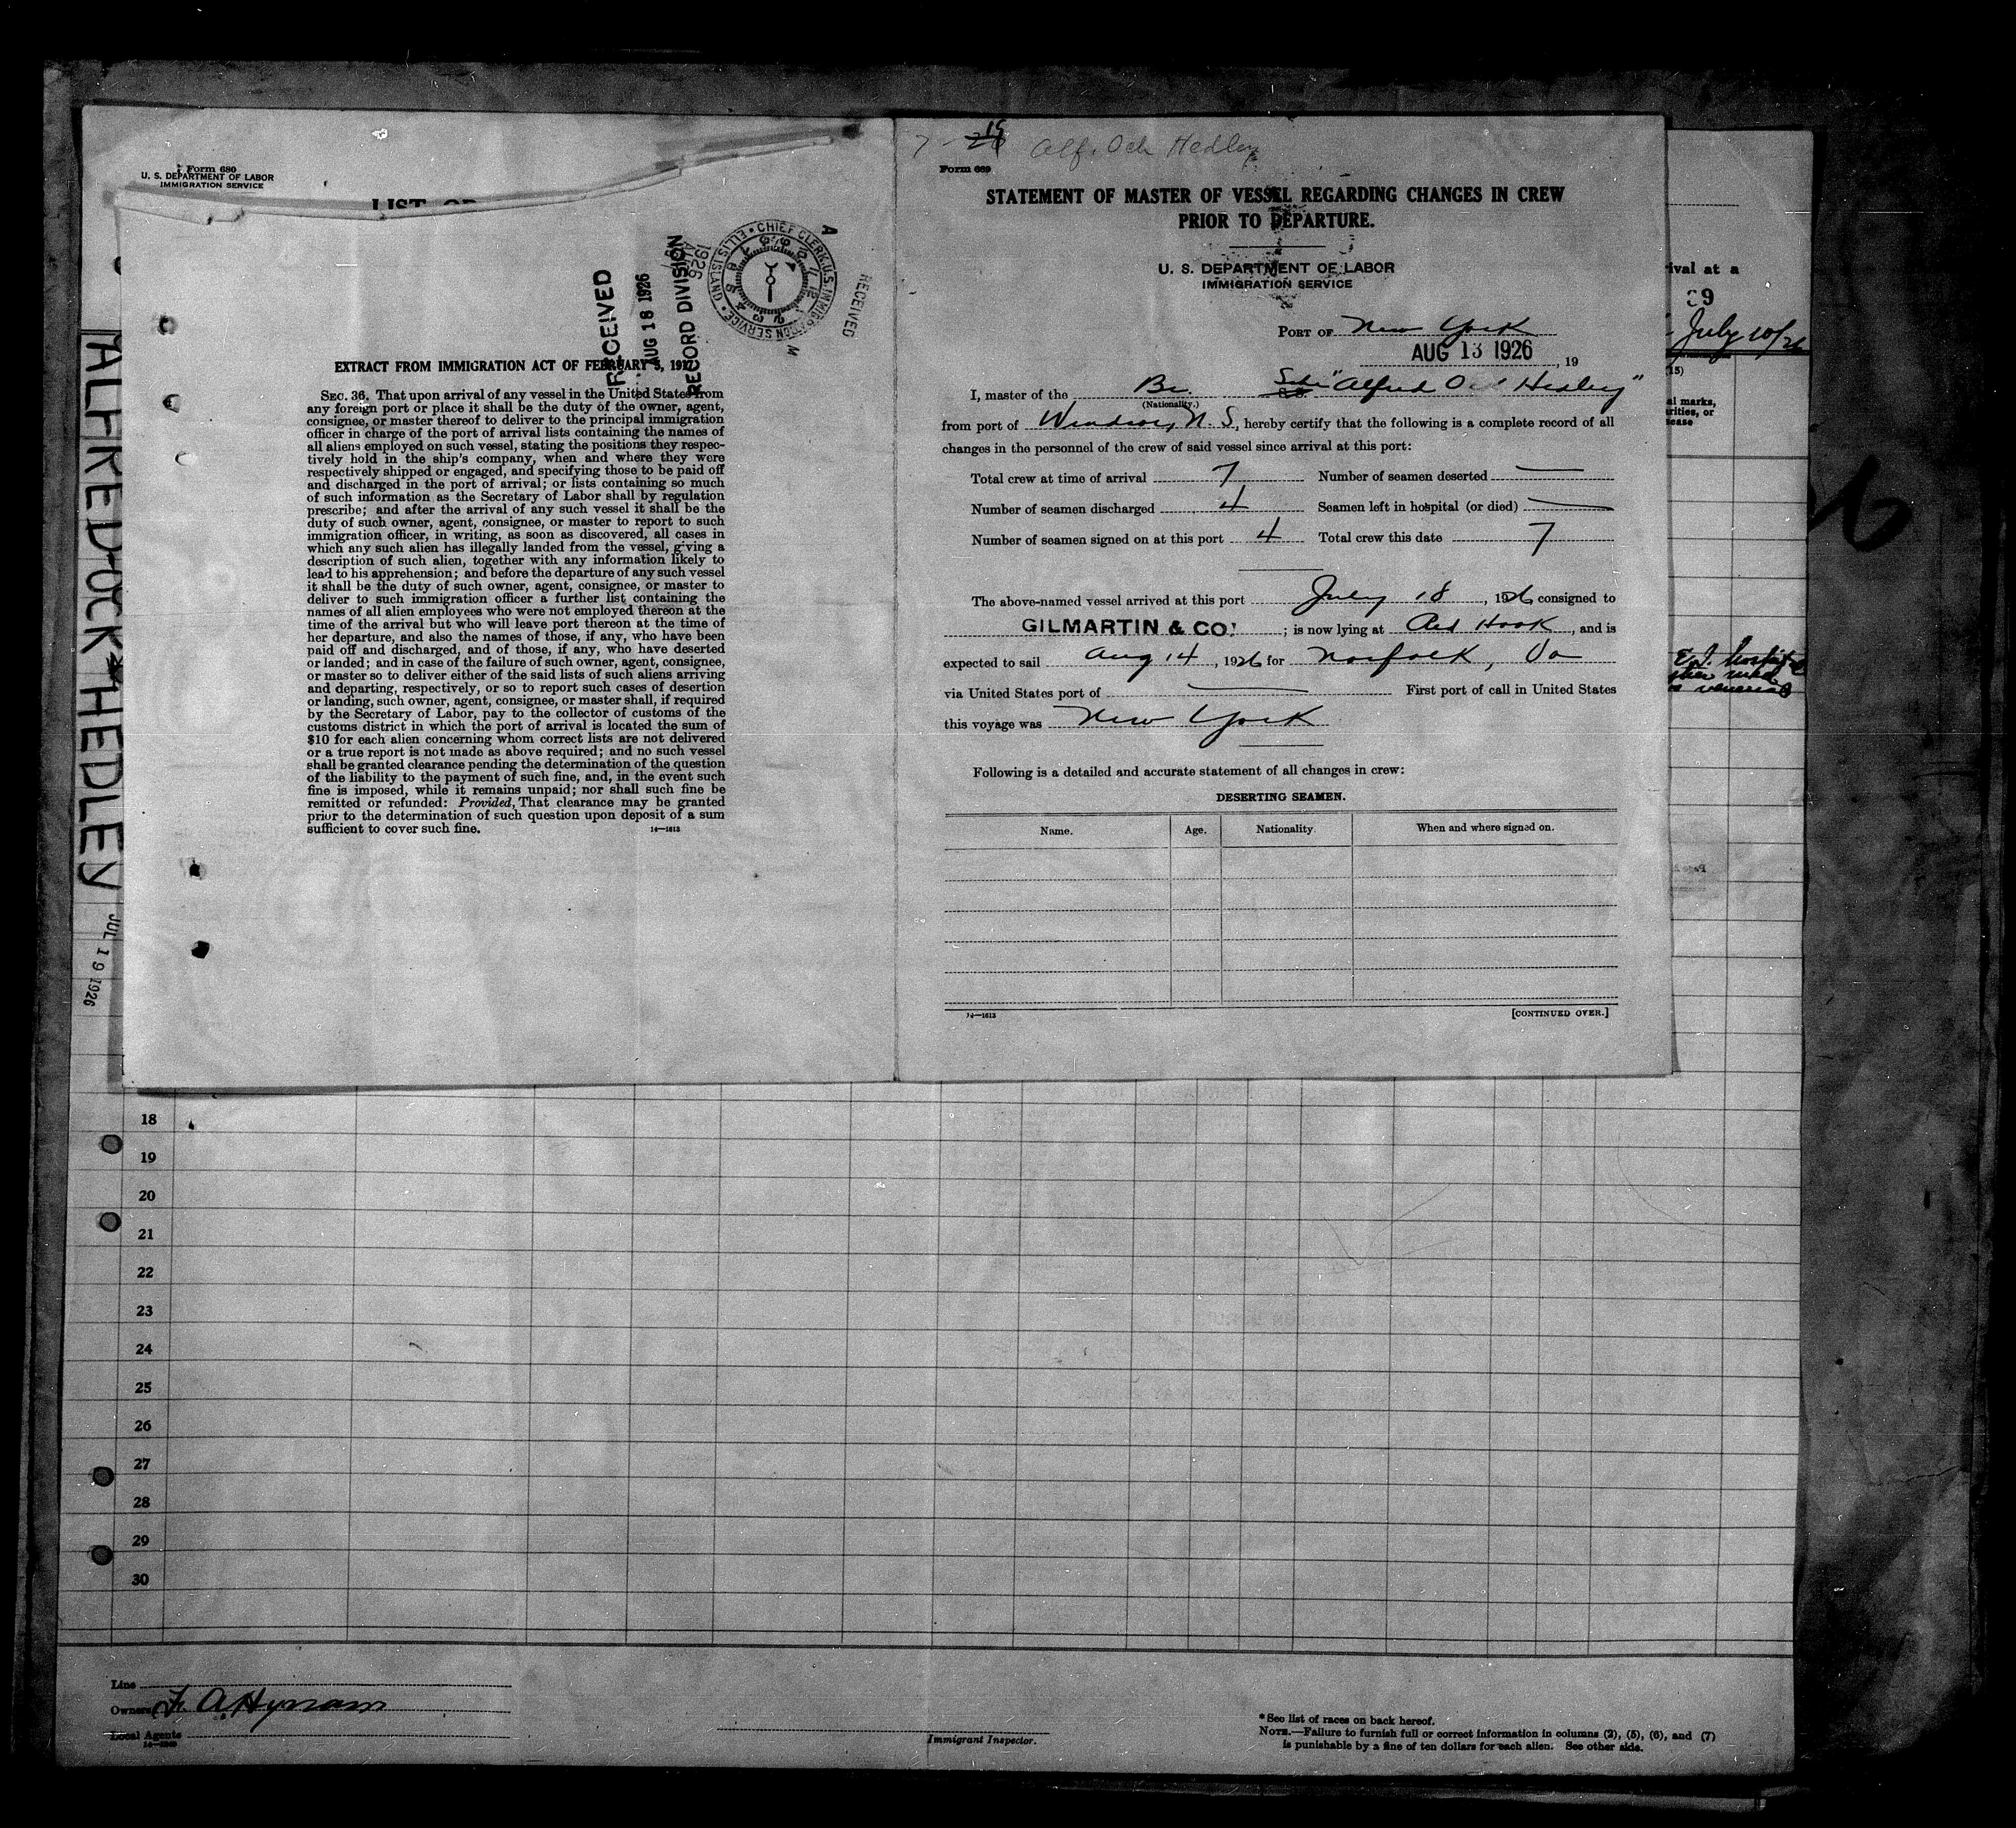 Form 680
U. S. DEPARTMENT OF LABOR
IMMIGRATION SERVICE
LIST OR
RECEIVED
AUG 18 1926
RECORD DIVISION
CHIEF CLERK U. S. IMMIGRATION SERVICE • ELLIS ISLAND •
RECEIVED
1926
EXTRACT FROM IMMIGRATION ACT OF FEBRUARY 5, 1917.
SEC. 36. That upon arrival of any vessel in the United States from
any foreign port or place it shall be the duty of the owner, agent,
consignee, or master thereof to deliver to the principal immigration
officer in charge of the port of arrival lists containing the names of
all aliens employed on such vessel, stating the positions they respec-
tively hold in the ship's company, when and where they were
respectively shipped or engaged, and specifying those to be paid off
and discharged in the port of arrival; or lists containing so much
of such information as the Secretary of Labor shall by regulation
prescribe; and after the arrival of any such vessel it shall be the
duty of such owner, agent, consignee, or master to report to such
immigration officer, in writing, as soon as discovered, all cases in
which any such alien has illegally landed from the vessel, giving a
description of such alien, together with any information likely to
lead to his apprehension; and before the departure of any such vessel
it shall be the duty of such owner, agent, consignee, or master to
deliver to such immigration officer a further list containing the
names of all alien employees who were not employed thereon at the
time of the arrival but who will leave port thereon at the time of
her departure, and also the names of those, if any, who have been
paid off and discharged, and of those, if any, who have deserted
or landed; and in case of the failure of such owner, agent, consignee,
or master so to deliver either of the said lists of such aliens arriving
and departing, respectively, or so to report such cases of desertion
or landing, such owner, agent, consignee, or master shall, if required
by the Secretary of Labor, pay to the collector of customs of the
customs district in which the port of arrival is located the sum of
$10 for each alien concerning whom correct lists are not delivered
or a true report is not made as above required; and no such vessel
shall be granted clearance pending the determination of the question
of the liability to the payment of such fine, and, in the event such
fine is imposed, while it remains unpaid; nor shall such fine be
remitted or refunded: Provided, That clearance may be granted
prior to the determination of such question upon deposit of a sum
sufficient to cover such fine.
14—1613
ALFRED OCK HEDLEY
JUL 19 1926
7-19 Alf. Ock Hedley
Form 689
STATEMENT OF MASTER OF VESSEL REGARDING CHANGES IN CREW
PRIOR TO DEPARTURE.
U. S. DEPARTMENT OF LABOR
IMMIGRATION SERVICE
PORT OF New York
AUG 13 1926, 19
I, master of the Br. Sch "Alfred Ock Hedley"
(Nationality.)
from port of Windsor, N. S., hereby certify that the following is a complete record of all
changes in the personnel of the crew of said vessel since arrival at this port:
Total crew at time of arrival 7 Number of seamen deserted —
Number of seamen discharged 4 Seamen left in hospital (or died) —
Number of seamen signed on at this port 4 Total crew this date 7
The above-named vessel arrived at this port July 18, 1926 consigned to
GILMARTIN & CO.; is now lying at Red Hook, and is
expected to sail Aug 14, 1926 for Norfolk, Va
via United States port of — First port of call in United States
this voyage was New York
Following is a detailed and accurate statement of all changes in crew:
DESERTING SEAMEN.
Name. Age. Nationality. When and where signed on.
14—1613 [CONTINUED OVER.]
rival at a
89
July 10/26
(15)
al marks,
arities, or
sease
18
19
20
21
22
23
24
25
26
27
28
29
30
Line
Owners F. A. Hyman
Local Agents
Immigrant Inspector.
* See list of races on back hereof.
NOTE.—Failure to furnish full or correct information in columns (2), (5), (6), and (7)
is punishable by a fine of ten dollars for each alien. See other side.